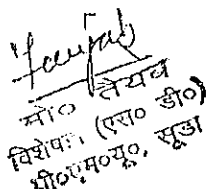 मो० तैयब
विशेषज्ञ (एस० डी०)
पी०एम०यू०, सूडा